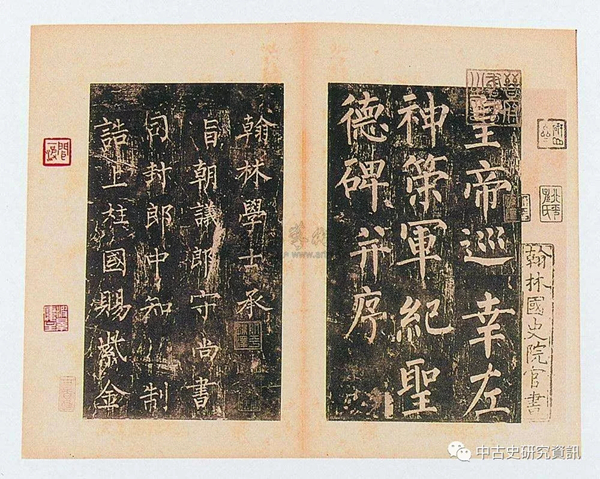 翰林國史院官書
皇帝巡幸左
神策軍紀聖
德碑并序
翰林學士承
旨朝議郎守尚書
司封郎中知 制
誥上柱國賜紫金
中古史研究資訊